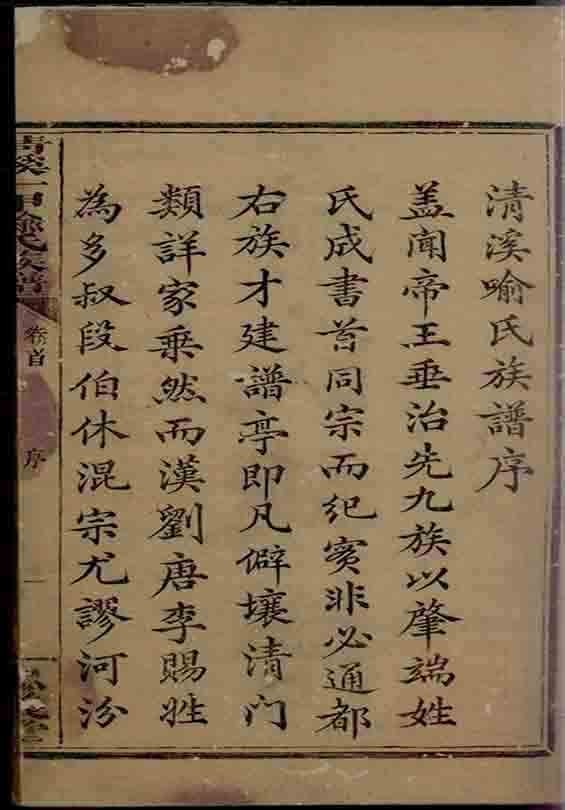 清溪喻氏族譜序
盖聞帝王垂治先九族以肇端姓
氏成書首同宗而紀實非必通都
右族才建譜亭即凡僻壤清門
類詳家乗然而漢劉唐李賜姓
為多叔段伯休混宗尤謬河汾
卷首
序
一